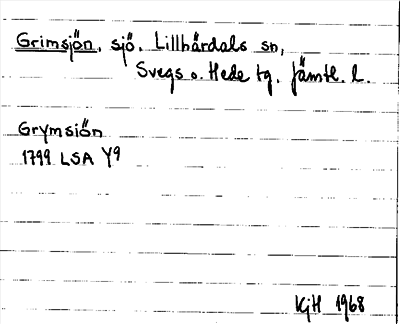 Grimsjön, sjö, Lillhärdals sn,
Svegs o. Hede tg. Jämtl. l.
Grymsiön
1799 LSA Y9
KjH 1968